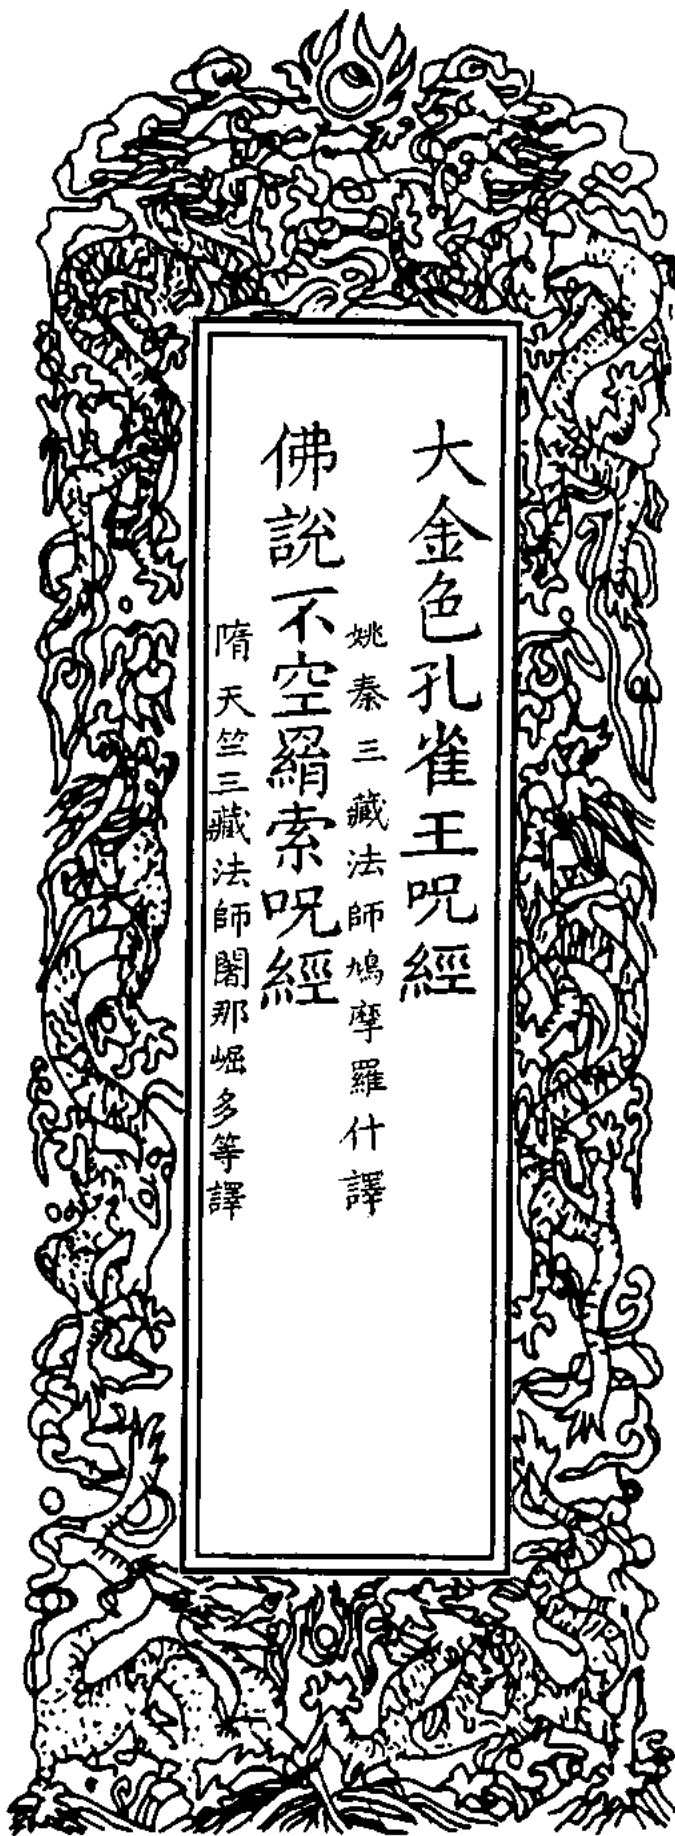 大金色孔雀王呪經
姚秦三藏法師鳩摩羅什譯
佛說不空羂索呪經
隋天竺三藏法師闍那崛多等譯